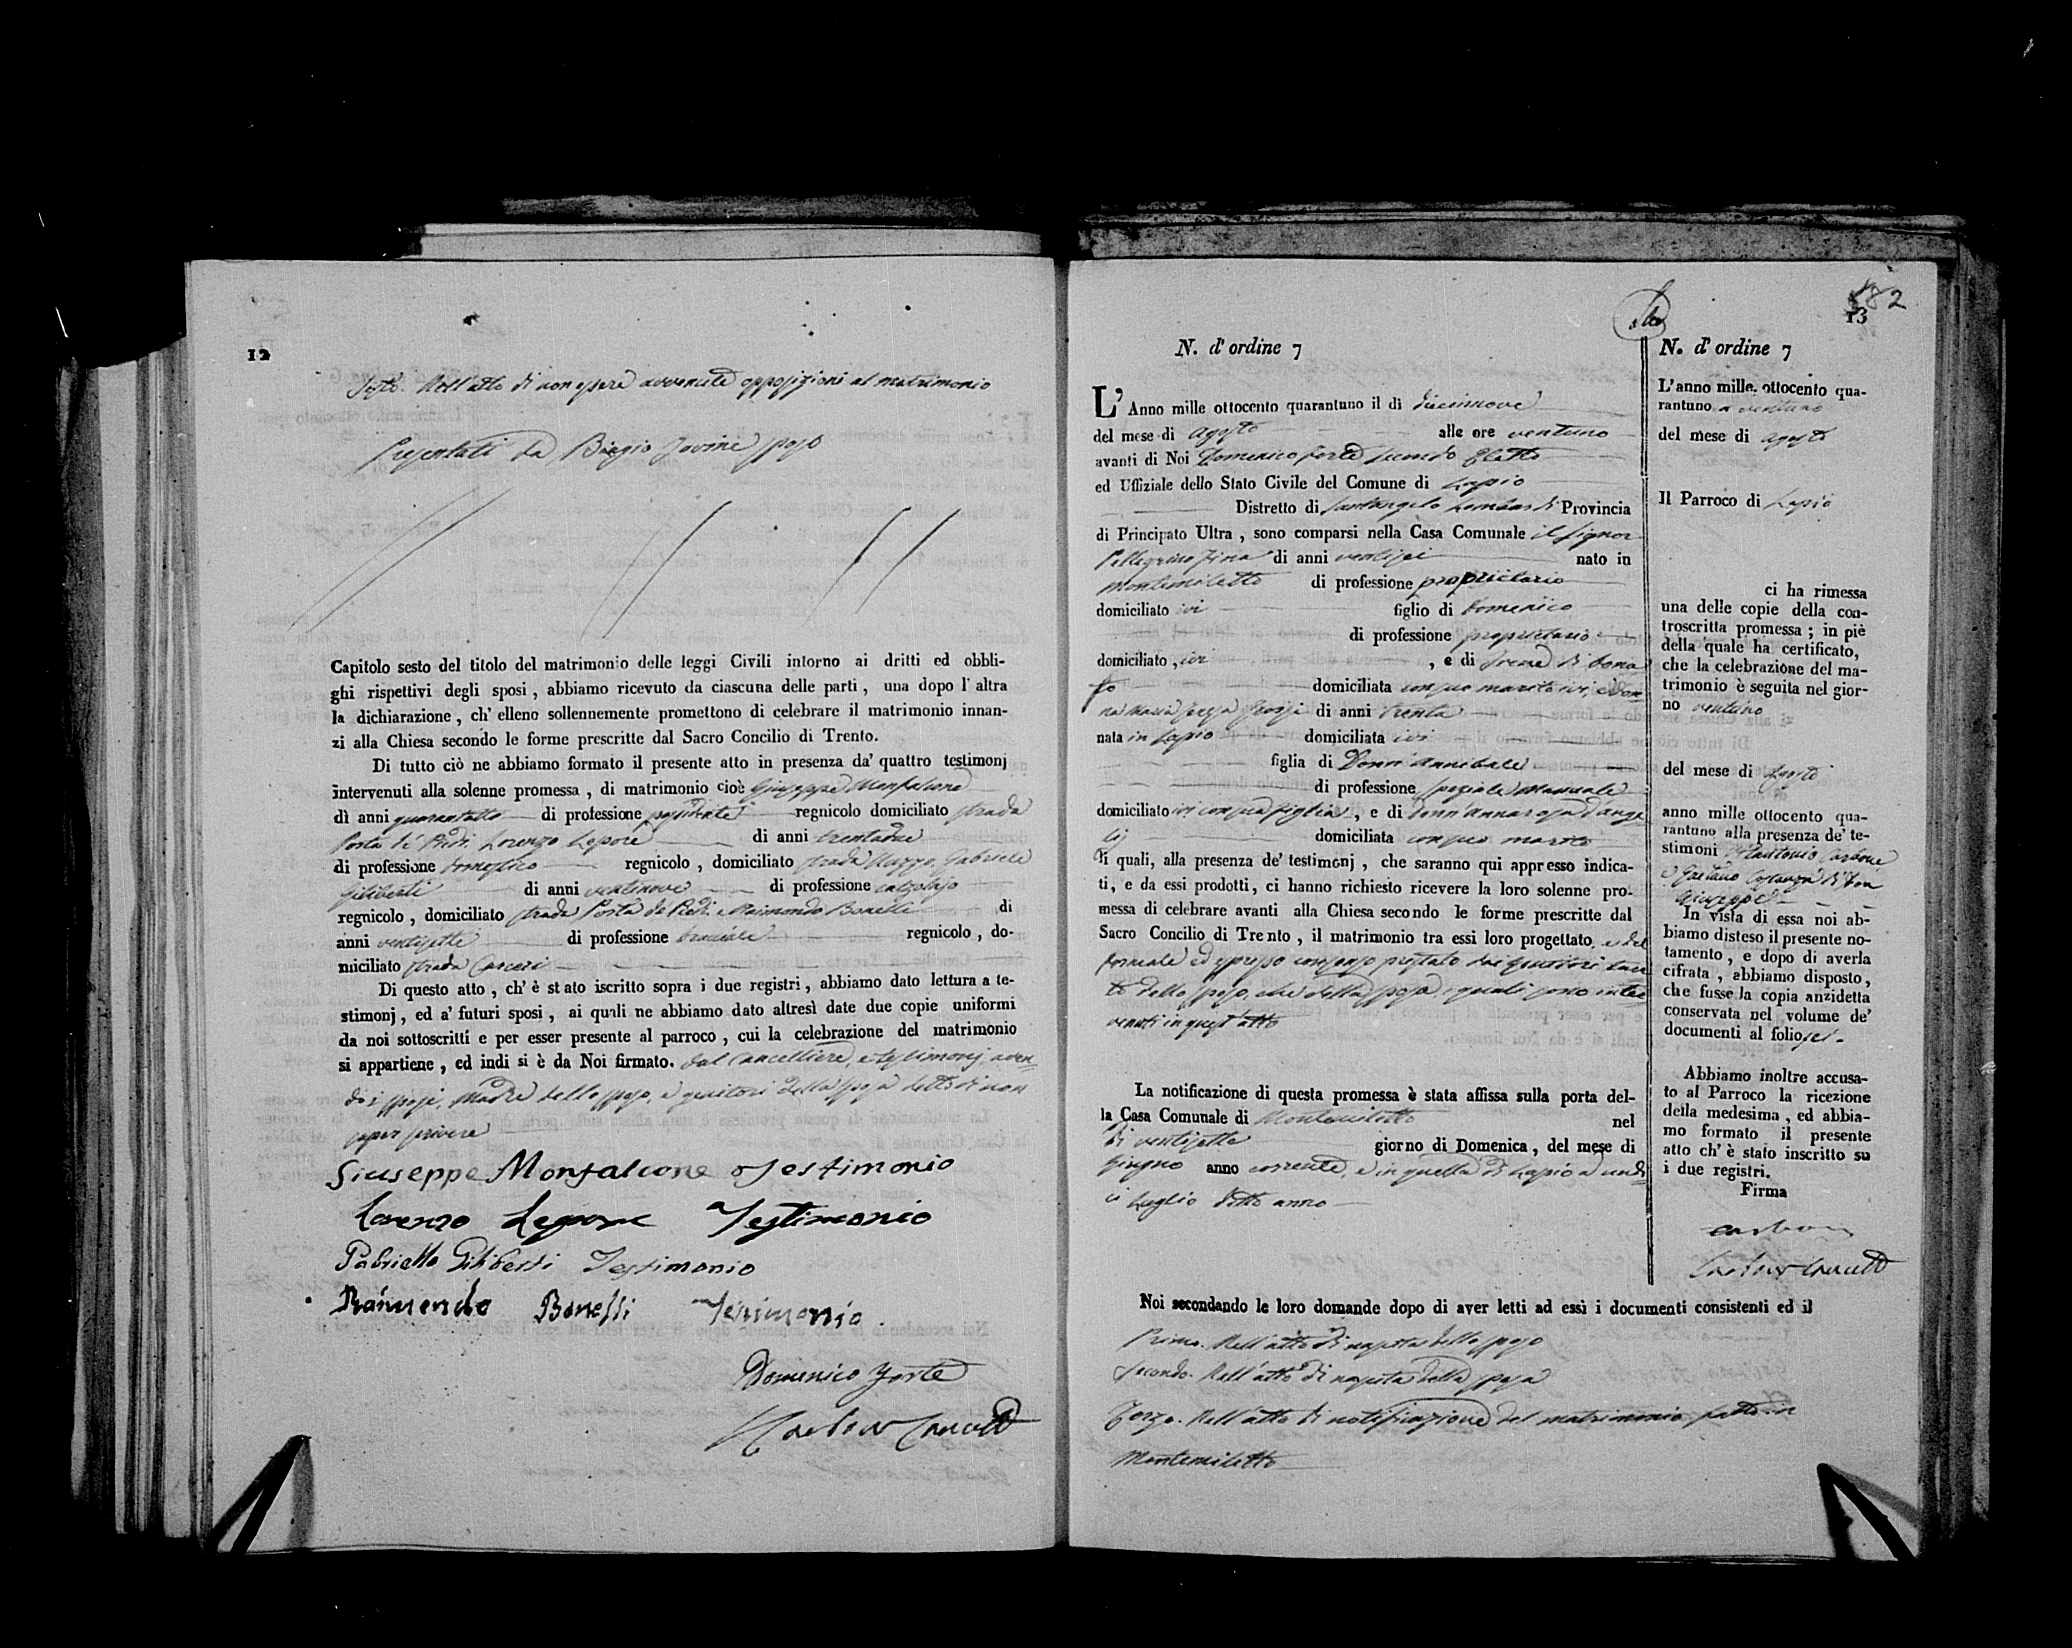 12
Sesto. Dell'atto di non essere avvenute opposizioni al matrimonio
Presentati da Biagio Iovine sposo
Capitolo sesto del titolo del matrimonio delle leggi Civili intorno ai dritti ed obbli-
ghi rispettivi degli sposi, abbiamo ricevuto da ciascuna delle parti, una dopo l'altra
la dichiarazione, ch'elleno sollennemente promettono di celebrare il matrimonio innan-
zi alla Chiesa secondo le forme prescritte dal Sacro Concilio di Trento.
Di tutto ciò ne abbiamo formato il presente atto in presenza da' quattro testimonj
intervenuti alla solenne promessa, di matrimonio cioè Giuseppe Monfalcone
di anni quarantotto di professione possidente regnicolo domiciliato strada
Porta de' Piedi. Lorenzo Lepore di anni trentadue
di professione domestico regnicolo, domiciliato strada Gabriele
Giliberti di anni ventinove di professione calzolajo
regnicolo, domiciliato strada Porta de Piedi. e Raimondo Bonelli di
anni ventisette di professione bracciale regnicolo, do-
miciliato strada Carceri
Di questo atto, ch'è stato iscritto sopra i due registri, abbiamo dato lettura a te-
stimonj, ed a' futuri sposi, ai quali ne abbiamo dato altresì date due copie uniformi
da noi sottoscritti e per esser presente al parroco, cui la celebrazione del matrimonio
si appartiene, ed indi si è da Noi firmato. dal Cancelliere, e testimonj, aven-
do i sposi, Madre dello sposo, e genitori della sposa detto di non
saper scrivere
Giuseppe Monfalcone Testimonio
Lorenzo Lepore Testimonio
Gabriello Giliberti Testimonio
Raimondo Bonelli Testimonio.
Domenico Forte
582
13
N. d'ordine 7
L'Anno mille ottocento quarantuno il dì diecinove
del mese di Agosto alle ore ventuno
avanti di Noi Domenico Forte secondo Eletto
ed Uffiziale dello Stato Civile del Comune di Lapio
Distretto di Santangelo Lombardi Provincia
di Principato Ultra, sono comparsi nella Casa Comunale il signor
Pellegrino Fina di anni ventisei nato in
Montemiletto di professione proprietario
domiciliato ivi figlio di Domenico
di professione proprietario
domiciliato, ivi, e di Irene di Dona
to domiciliata con suo marito ivi, e Don-
na Maria Teresa di anni trenta
nata in Lapio domiciliata ivi
figlia di Donn'Annibale
di professione speziale manuale
domiciliato ivi con sua figlia, e di Donn'Annarosa d'Ange
lis domiciliata con suo marito
li quali, alla presenza de' testimonj, che saranno qui appresso indica-
ti, e da essi prodotti, ci hanno richiesto ricevere la loro solenne pro-
messa di celebrare avanti alla Chiesa secondo le forme prescritte dal
Sacro Concilio di Trento, il matrimonio tra essi loro progettato, e del
formale ed espresso consenso prestato dai genitori tan
to dello sposo, che della sposa, i quali sono inter
venuti in quest'atto
La notificazione di questa promessa è stata affissa sulla porta del-
la Casa Comunale di Montemiletto nel
dì ventisette giorno di Domenica, del mese di
Giugno anno corrente, e in quella di Lapio a undi
ci Luglio detto anno
N. d'ordine 7
L'anno mille ottocento qua-
rantuno a ventuno
del mese di Agosto
Il Parroco di Lapio
ci ha rimessa
una delle copie della con-
troscritta promessa; in piè
della quale ha certificato,
che la celebrazione del ma-
trimonio è seguita nel gior-
no ventuno
del mese di Agosto
anno mille ottocento qua-
rantuno alla presenza de' te-
stimoni Carbone
e Gaetano Costanza di Don
Giuseppe
In vista di essa noi ab-
biamo disteso il presente no-
tamento, e dopo di averla
cifrata, abbiamo disposto,
che fusse la copia anzidetta
conservata nel volume de'
documenti al folio sei.
Abbiamo inoltre accusa-
to al Parroco la ricezione
della medesima, ed abbia-
mo formato il presente
atto ch'è stato inscritto su
i due registri.
Firma
Noi secondando le loro domande dopo di aver letti ad essi i documenti consistenti ed il
Primo. Dell'atto di nascita dello sposo
Secondo. Dell'atto di nascita della sposa
Terzo. Dell'atto di notificazione del matrimonio fatto in
Montemiletto